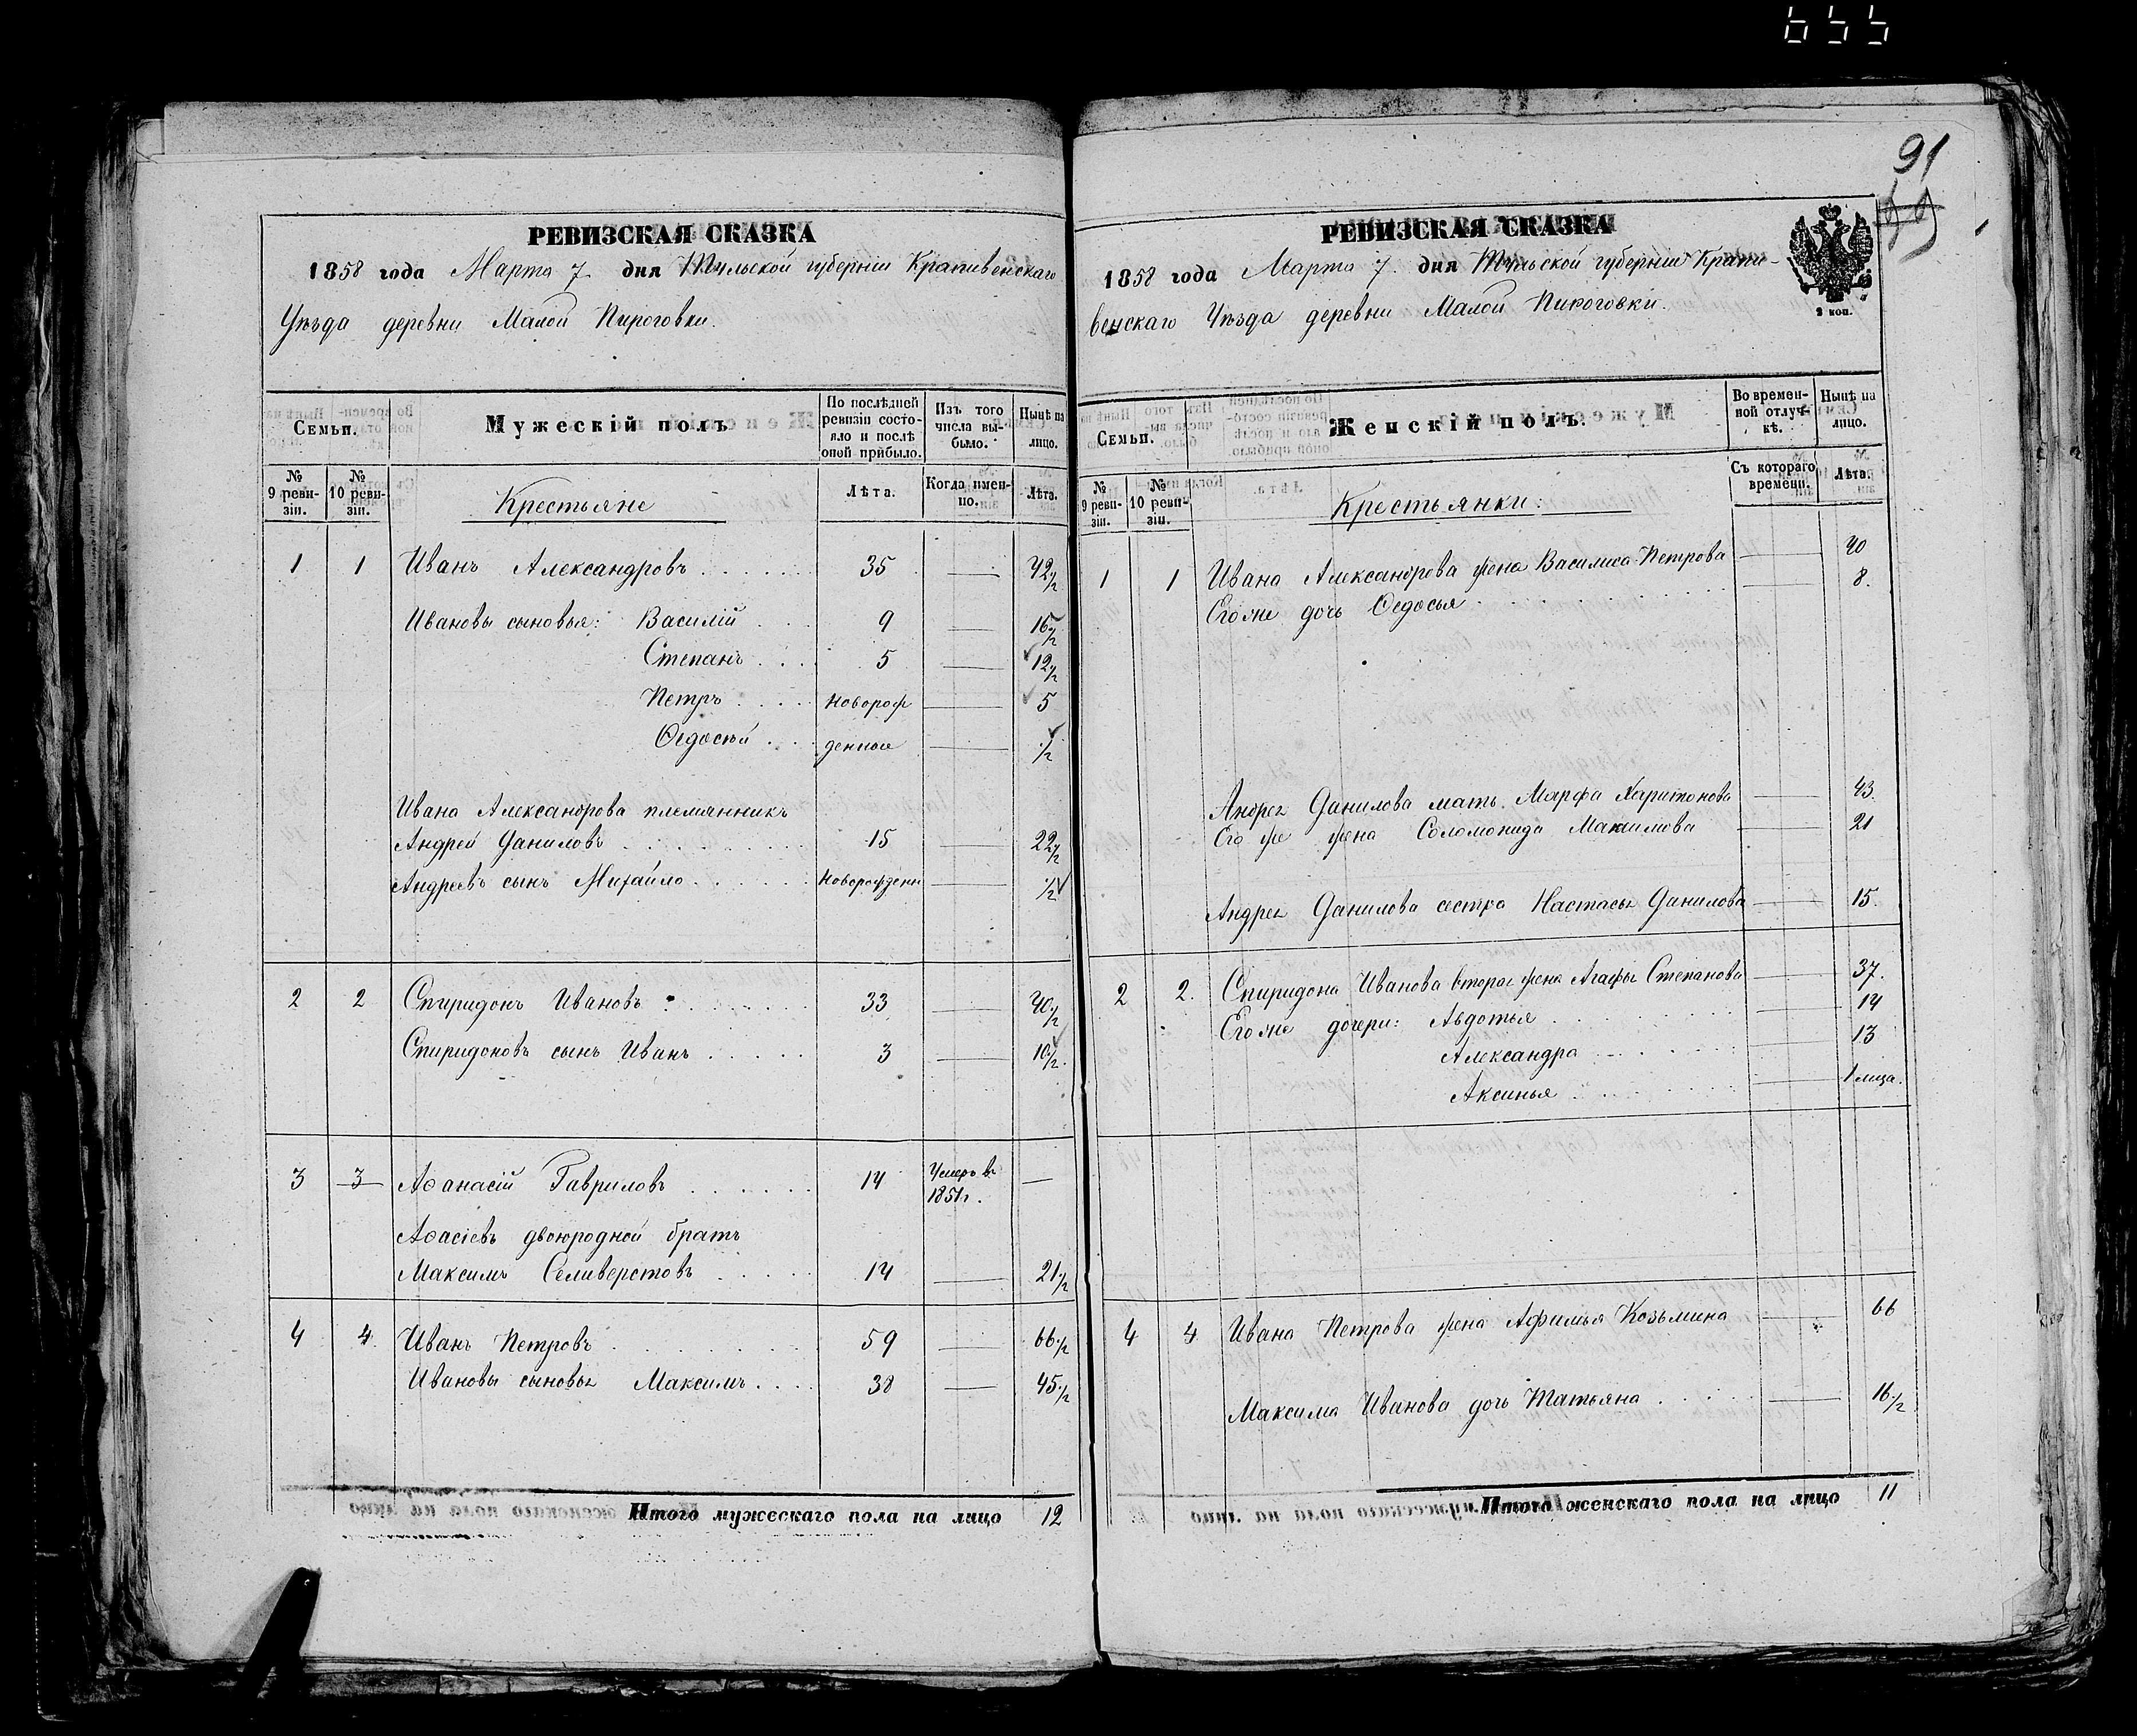 655
91
РЕВИЗСКАЯ СКАЗКА
1858 года Марта 7 дня Тульской губерніи Крапивенскаго
Уѣзда деревни Малой Пироговки.
Семьи.
Мужескій полъ
По послѣдней ревизіи состояло и послѣ оной прибыло.
Изъ того числа выбыло.
Нынѣ на лицо.
№ 9 ревизіи.
№ 10 ревизіи.
Крестьяне
Лѣта.
Когда именно.
Лѣта.
1 1 Иванъ Александровъ . . . . . 35 — 42 1/2
Ивановы сыновья: Василій . . . 9 — 16 1/2
Степанъ . . . 5 — 12 1/2
Петръ . . . . Новорож — 5
Ѳедосѣй . . . денные — 1/2
Ивана Александрова племянникъ
Андрей Даниловъ . . . . . . . . . 15 — 22 1/2
Андреевъ сынъ Михайло . . . . . . Новорожденн — 1/2
2 2 Спиридонъ Ивановъ . . . . . . . 33 — 40 1/2
Спиридоновъ сынъ Иванъ . . . . . 3 — 10 1/2
3 3 Аѳанасій Гавриловъ . . . . . . 14 Умеръ въ 1851 г. —
Аѳасіевъ двоюродной братъ
Максимъ Селиверстовъ . . . . . 14 — 21 1/2
4 4 Иванъ Петровъ . . . . . . . . . 59 — 66 1/2
Ивановы сыновья Максимъ . . . . 38 — 45 1/2
Итого мужескаго пола на лицо 12
РЕВИЗСКАЯ СКАЗКА
1858 года Марта 7 дня Тульской губерніи Крапи-
венскаго Уѣзда деревни Малой Пироговки.
2 коп.
Семьи.
Женскій полъ.
Во временной отлучкѣ.
Нынѣ на лицо.
№ 9 ревизіи.
№ 10 ревизіи.
Крестьянки.
Съ котораго времени.
Лѣта.
1 1 Ивана Александрова жена Василиса Петрова — 40
Егоже дочь Ѳедосья . . . . . . . . . — 8.
Андрея Данилова мать Марфа Харитонова — 43.
Его же жена Соломонида Максимова — 21
Андрея Данилова сестра Настасья Данилова — 15.
2 2. Спиридона Иванова вторая жена Агафья Степанова — 37.
Егоже дочери: Авдотья . . . . . . . . — 14
Александра . . . . . . . — 13
Аксинья . . . . . . . — 1 лица.
4 4 Ивана Петрова жена Афимья Козьмина — 66
Максима Иванова дочь Татьяна . . . . . — 16 1/2
Итого женскаго пола на лицо 11